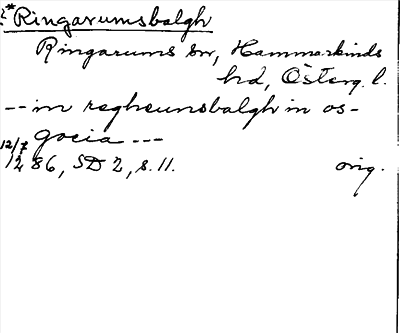 ?*Ringarumsbalgh
Ringarums sn, Hammarkinds
hd, Österg. l.
--in regheunsbalgh in os-
gocia ---
12/7
1286, SD 2, s. 11. orig.